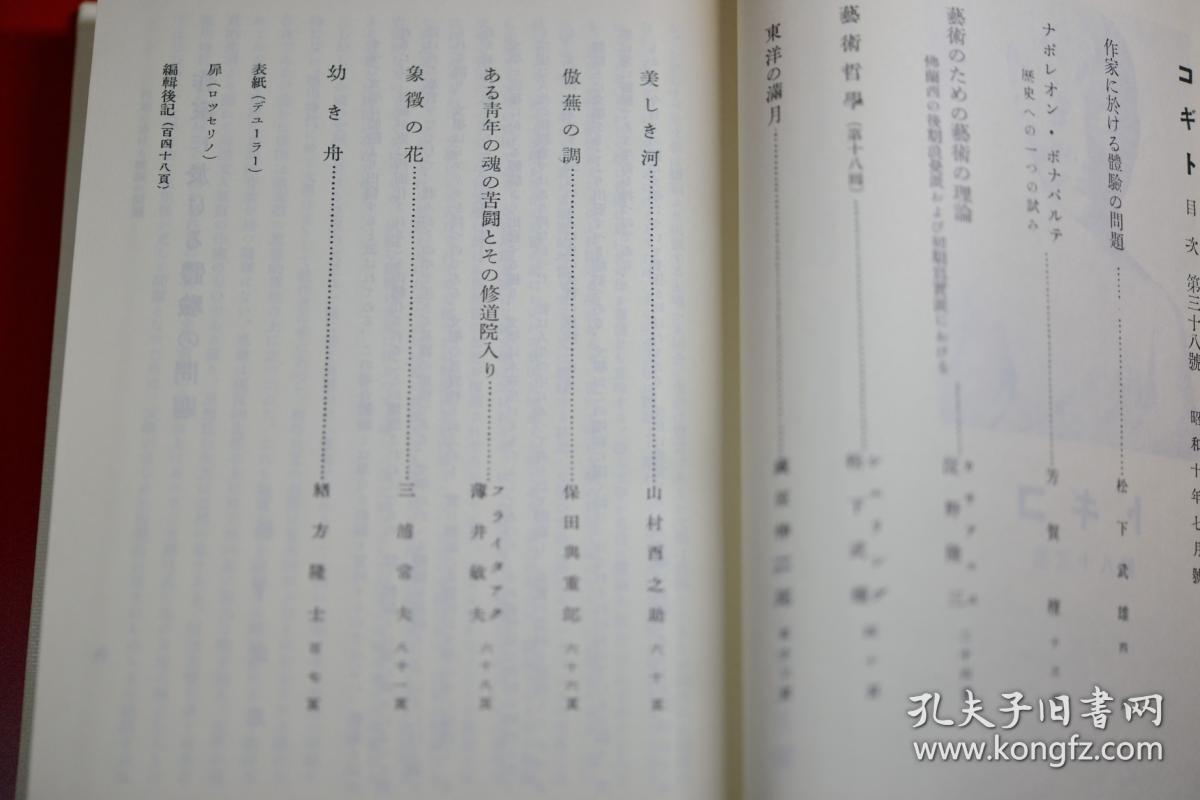 コギト 目次 第三十八號 昭和十年七月號
作家に於ける體驗の問題 松下武雄
ナポレオン・ボナパルテ 芳賀檀
歷史への一つの試み
藝術のための藝術の理論
佛蘭西の後期浪曼派および初期寫實派における
藝術哲學(第十八回)
東洋の滿月
美しき河 山村酉之助 六十頁
倣蕪の調 保田與重郎 六十六頁
ある靑年の魂の苦鬪とその修道院入り フライタアク 薄井敏夫 六十八頁
象徵の花 三浦常夫 八十一頁
幼き舟 緒方隆士 百七頁
表紙(デューラー)
扉(ロツセリノ)
編輯後記(百四十八頁)
孔夫子旧书网
www.kongfz.com